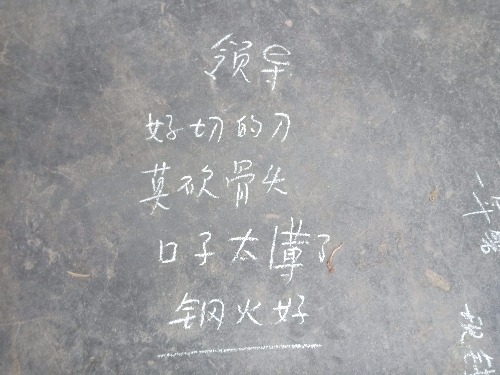 领导
好切的刀
莫砍骨头
口子太薄了
钢火好